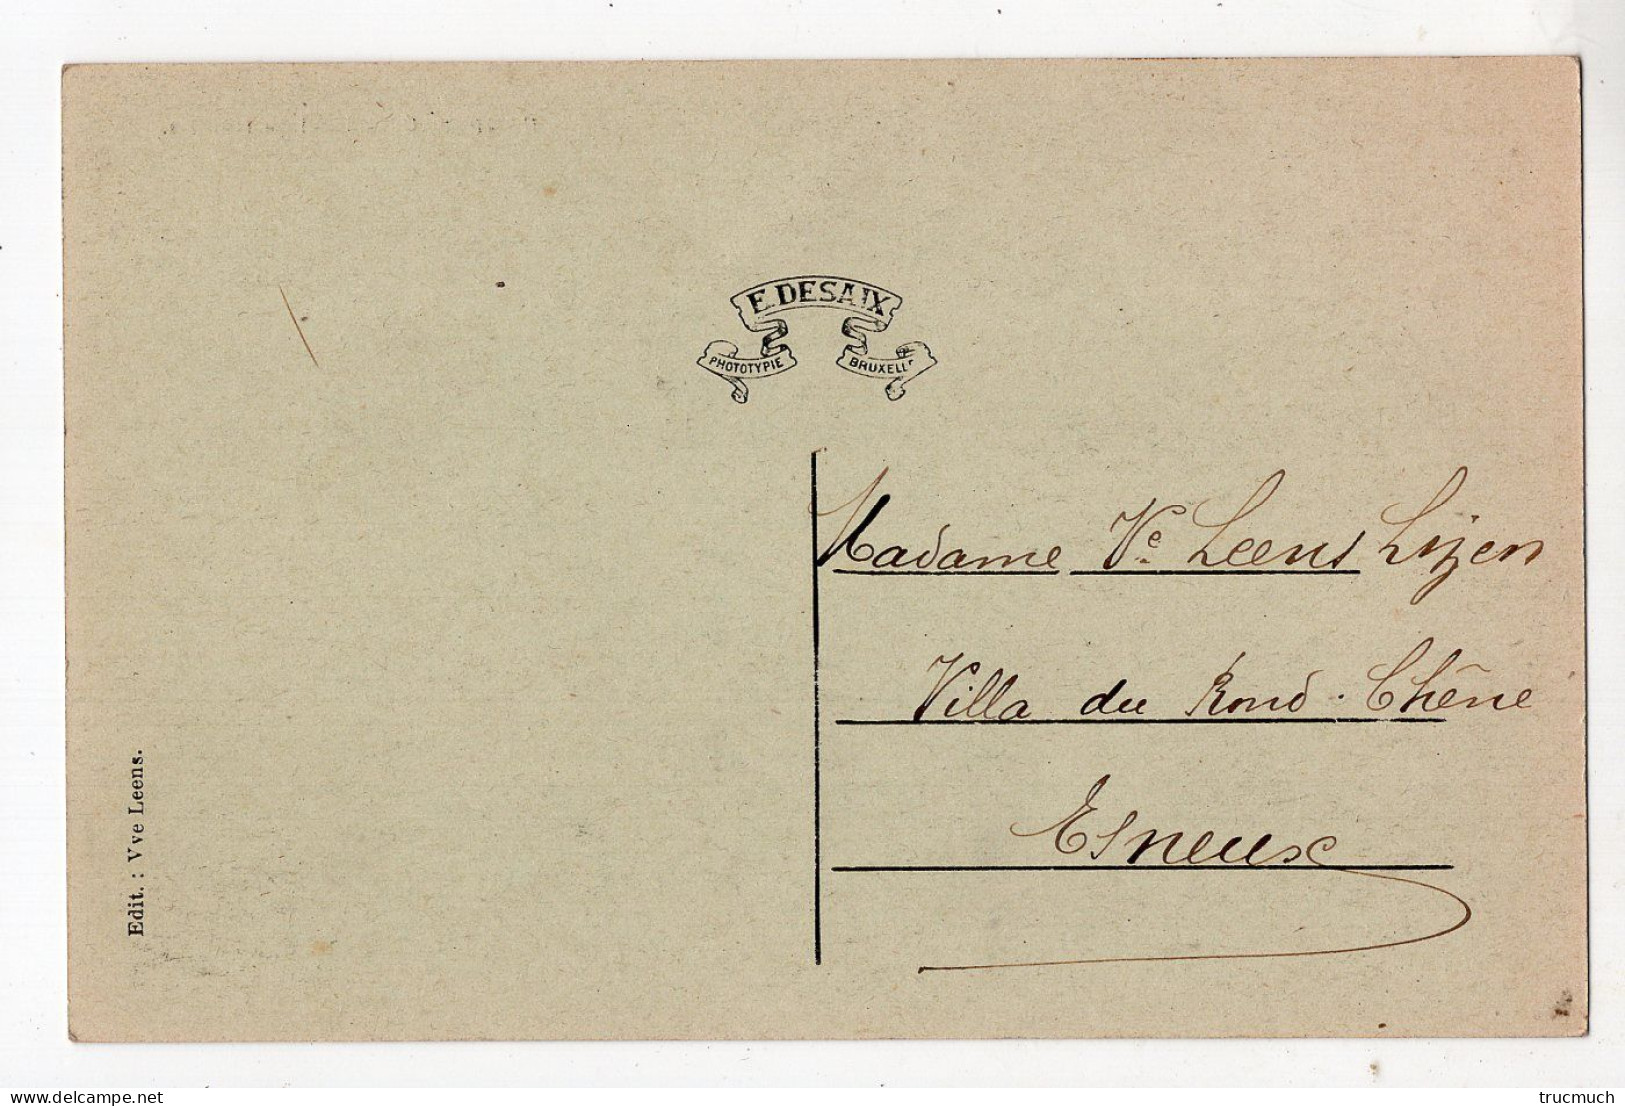 E. DESAIX
PHOTOTYPIE BRUXELLES
Madame Ve Leens Lizen
Villa du Rond-Chêne
Esneux
Edit. : Vve Leens.
delcampe.net
trucmuch